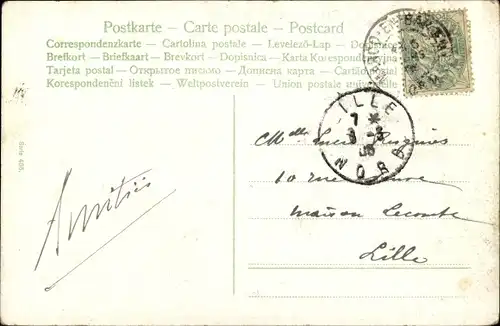 Postkarte – Carte postale – Postcard
Correspondenzkarte – Cartolina postale – Levelező-Lap – Dopisnice
Brefkort – Briefkaart – Brevkort – Dopisnica – Karta Korespondencyjna
Tarjeta postal – Открытое письмо – Дописна карта – Cartão postal
Korespondenční lístek – Weltpostverein – Union postale universelle
MARCQ-EN-BARŒUL
LILLE
7
3
NORD
Melle Lucie
10 rue
maison Lecomte
Lille
Amitiés
Serie 400.